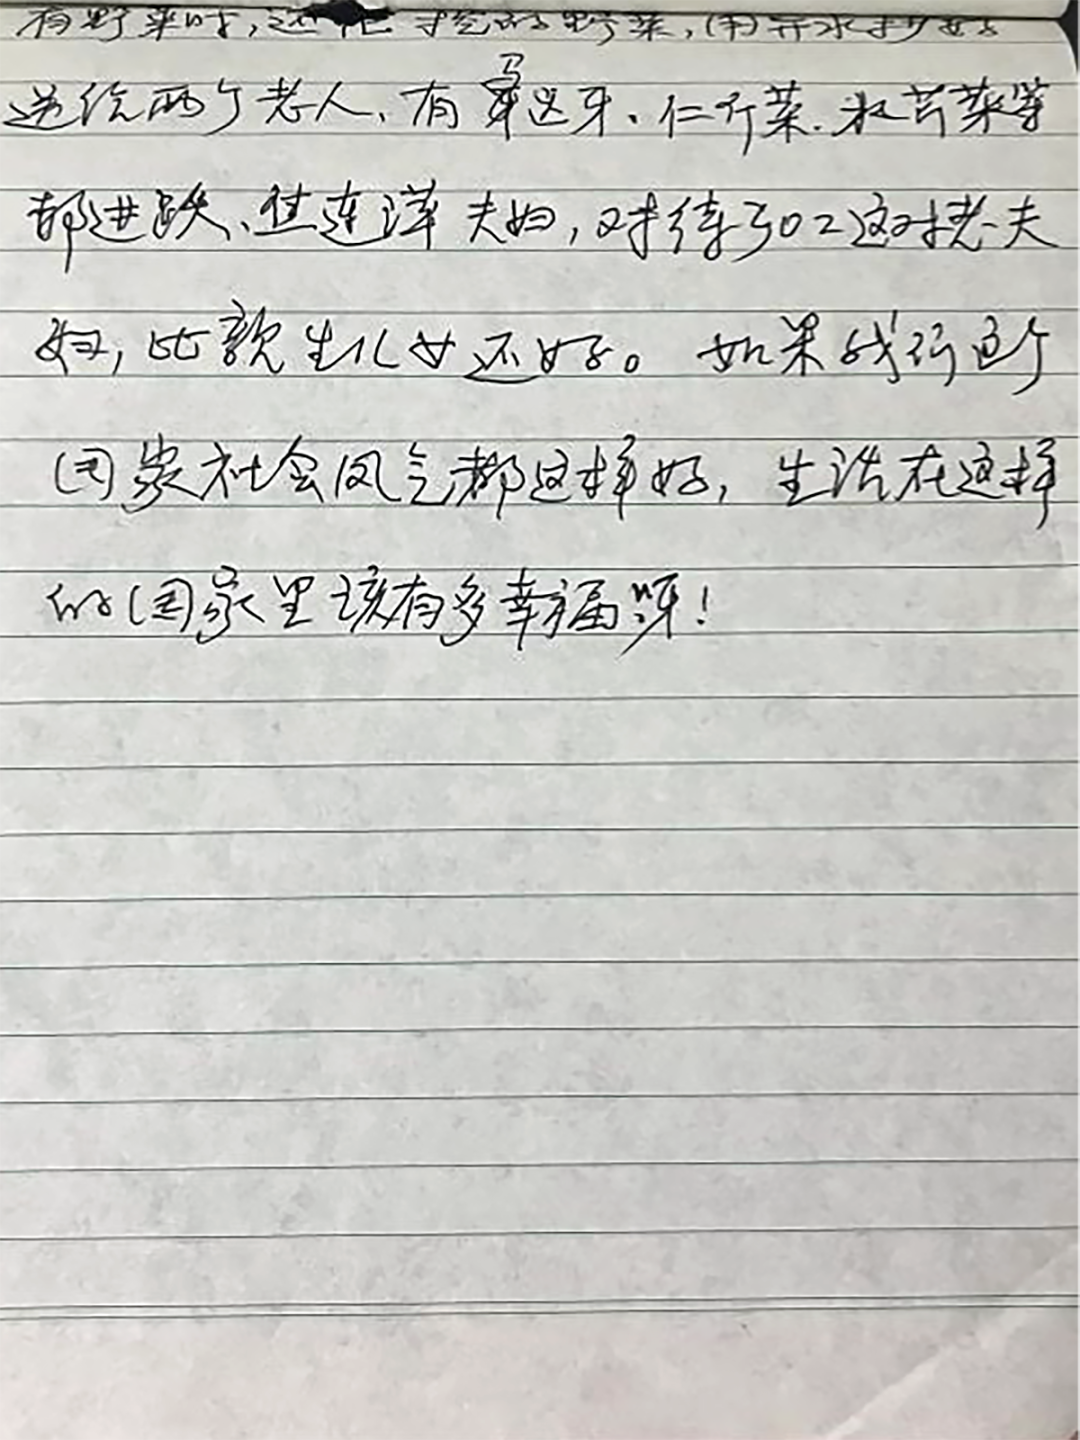 有野菜时，还把挖的野菜，用开水抄好
送给两个老人、有马迟牙、仁行菜、水芹菜等
都进跃、但连洋夫妇，对待302这对老夫
妇，比亲生儿女还好。如果我们这个
国家社会风气都这样好，生活在这样
的国家里该有多幸福呀！